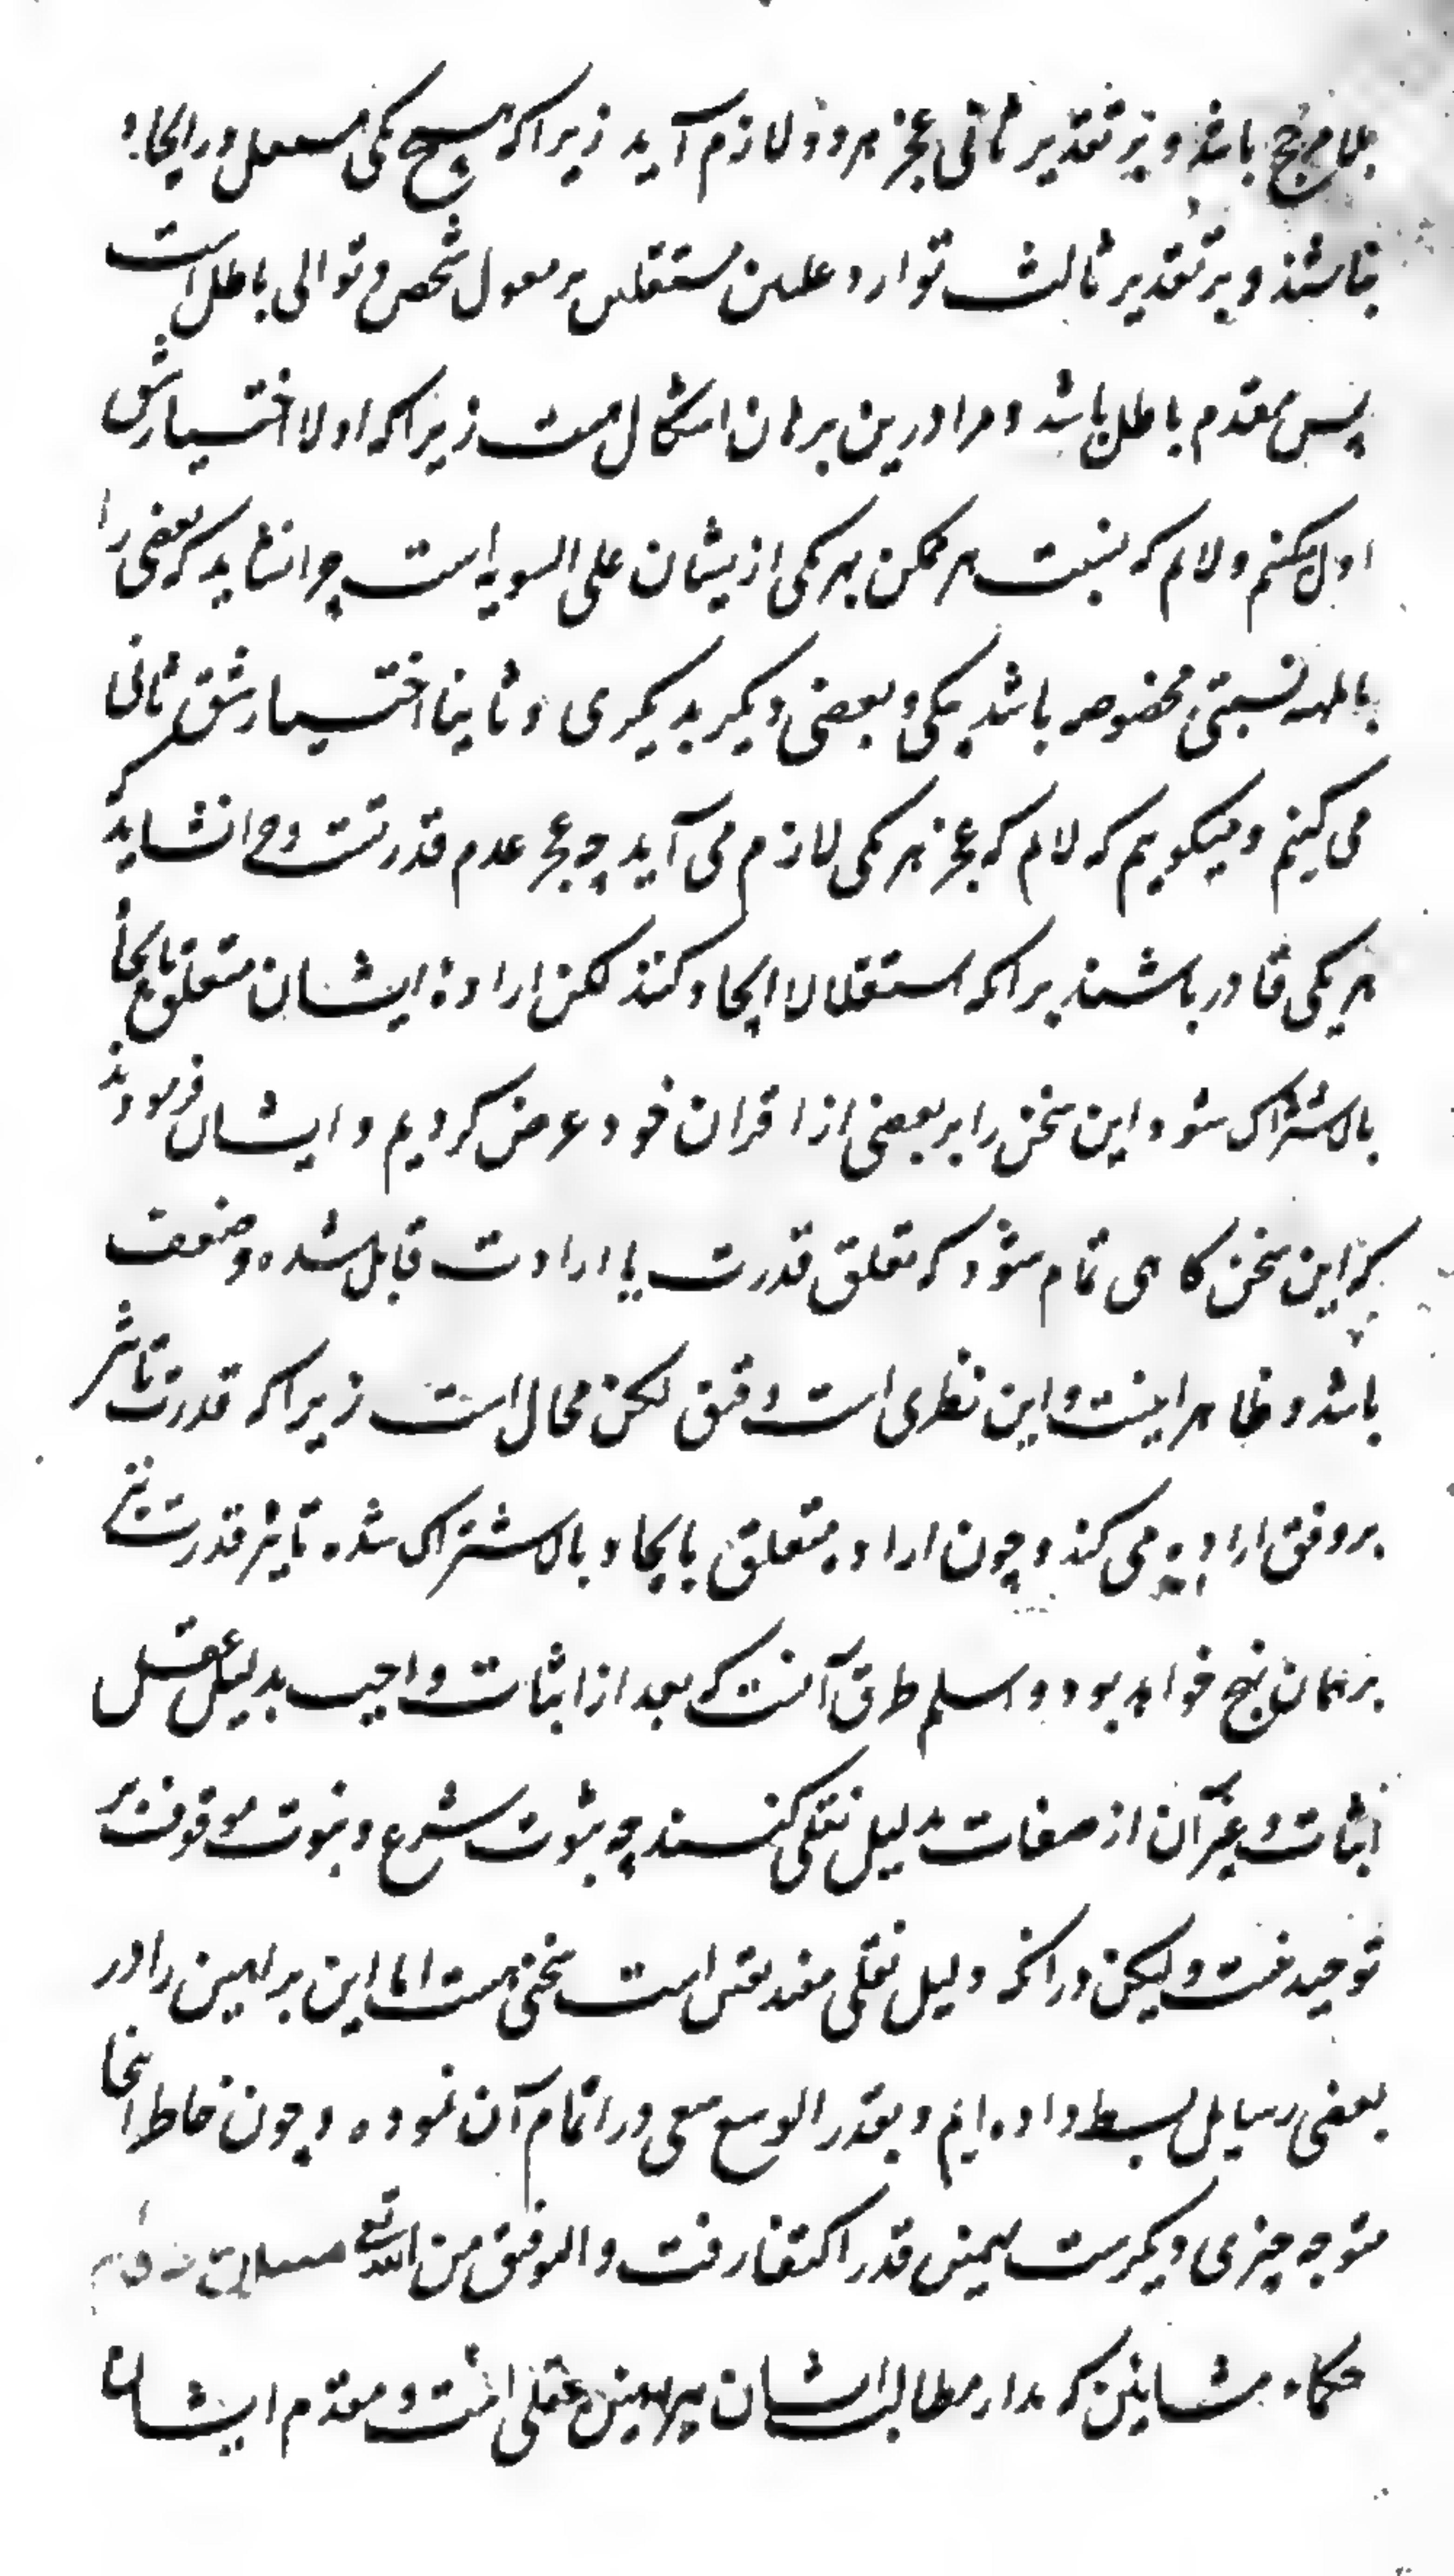 بلامرجح باشد و بر تقدیر ثانی عجز هر دو لازم آید زیرا که هیچ یکی مستقل در ایجاد
نباشند و بر تقدیر ثالث توارد علتین مستقلین بر معلول شخصی و توالی باطل است
پس مقدم باطل باشد و مرا درین برهان اشکال هست زیرا که اولا اختیار شق
اول میکنم و لانم که نسبت هر ممکن بهر یکی ازیشان علی السویه است چرا نشاید که بعضی را
بالمهیه نسبتی مخصوصه باشد بیکی و بعضی دیگر بدیگری و ثانیا اختیار شق ثانی
می کنیم و میگوییم که لانم که عجز هر یکی لازم می آید چه عجز عدم قدرتست و چرا نشاید که
هر یکی قادر باشند برانکه استقلالا ایجاد کنند لکن اراده ایشان متعلق بایجاد
بالاشتراک شود و این سخن را بر بعضی از اقران خود عرض کردیم و ایشان فرمودند
که این سخن گاهی تمام شود که تعلق قدرت با ارادت قابل شده و ضعف
باشد و ظاهرا نیست و این نظری است دقیق لکن محال است زیرا که قدرت تاثیر
بر وفق اراده می کند و چون اراده متعلق بایجاد بالاشتراک شده تاثیر قدرت نیز
بر همان نهج خواهد بود و اسلم طرق آنست که بعد از اثبات واجب بدلیل عقل
اثبات غیر آن از صفات بدلیل نقلی کنند چه ثبوت شرع و نبوت موقوف بر
توحید نیست و لیکن در آنکه دلیل نقلی مفید یقین است سخنی هست اما این براهین را در
بعضی رسایل بسط داده ایم و بقدر الوسع سعی در اتمام آن نموده و چون خاطر اینجا
متوجه چیزی دیگرست بهمین قدر اکتفا رفت و التوفیق من الله تع
حکماء مشایین که مدار مطالب ایشان براهین عقلی است و مقدم ایشان